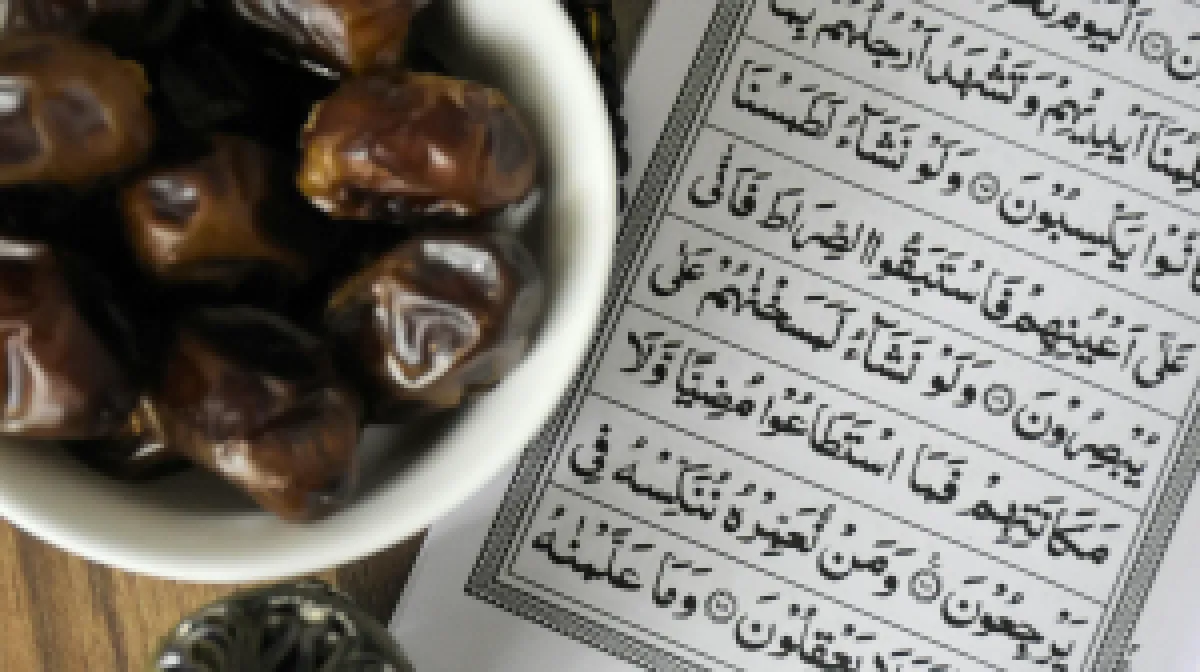 اَلْيَوْمَ
اَيْدِيْهِمْ وَتَشْهَدُ اَرْجُلُهُمْ بِمَا
كَانُوْا يَكْسِبُوْنَ ۝ وَلَوْ نَشَآءُ لَطَمَسْنَا
عَلٰٓى اَعْيُنِهِمْ فَاسْتَبَقُوا الصِّرَاطَ فَاَنّٰى
يُبْصِرُوْنَ ۝ وَلَوْ نَشَآءُ لَمَسَخْنٰهُمْ عَلٰى
مَكَانَتِهِمْ فَمَا اسْتَطَاعُوْا مُضِيًّا وَّلَا
يَرْجِعُوْنَ ۝ وَمَنْ نُّعَمِّرْهُ نُنَكِّسْهُ فِى
يَعْقِلُوْنَ ۝ وَمَا عَلَّمْنٰهُ